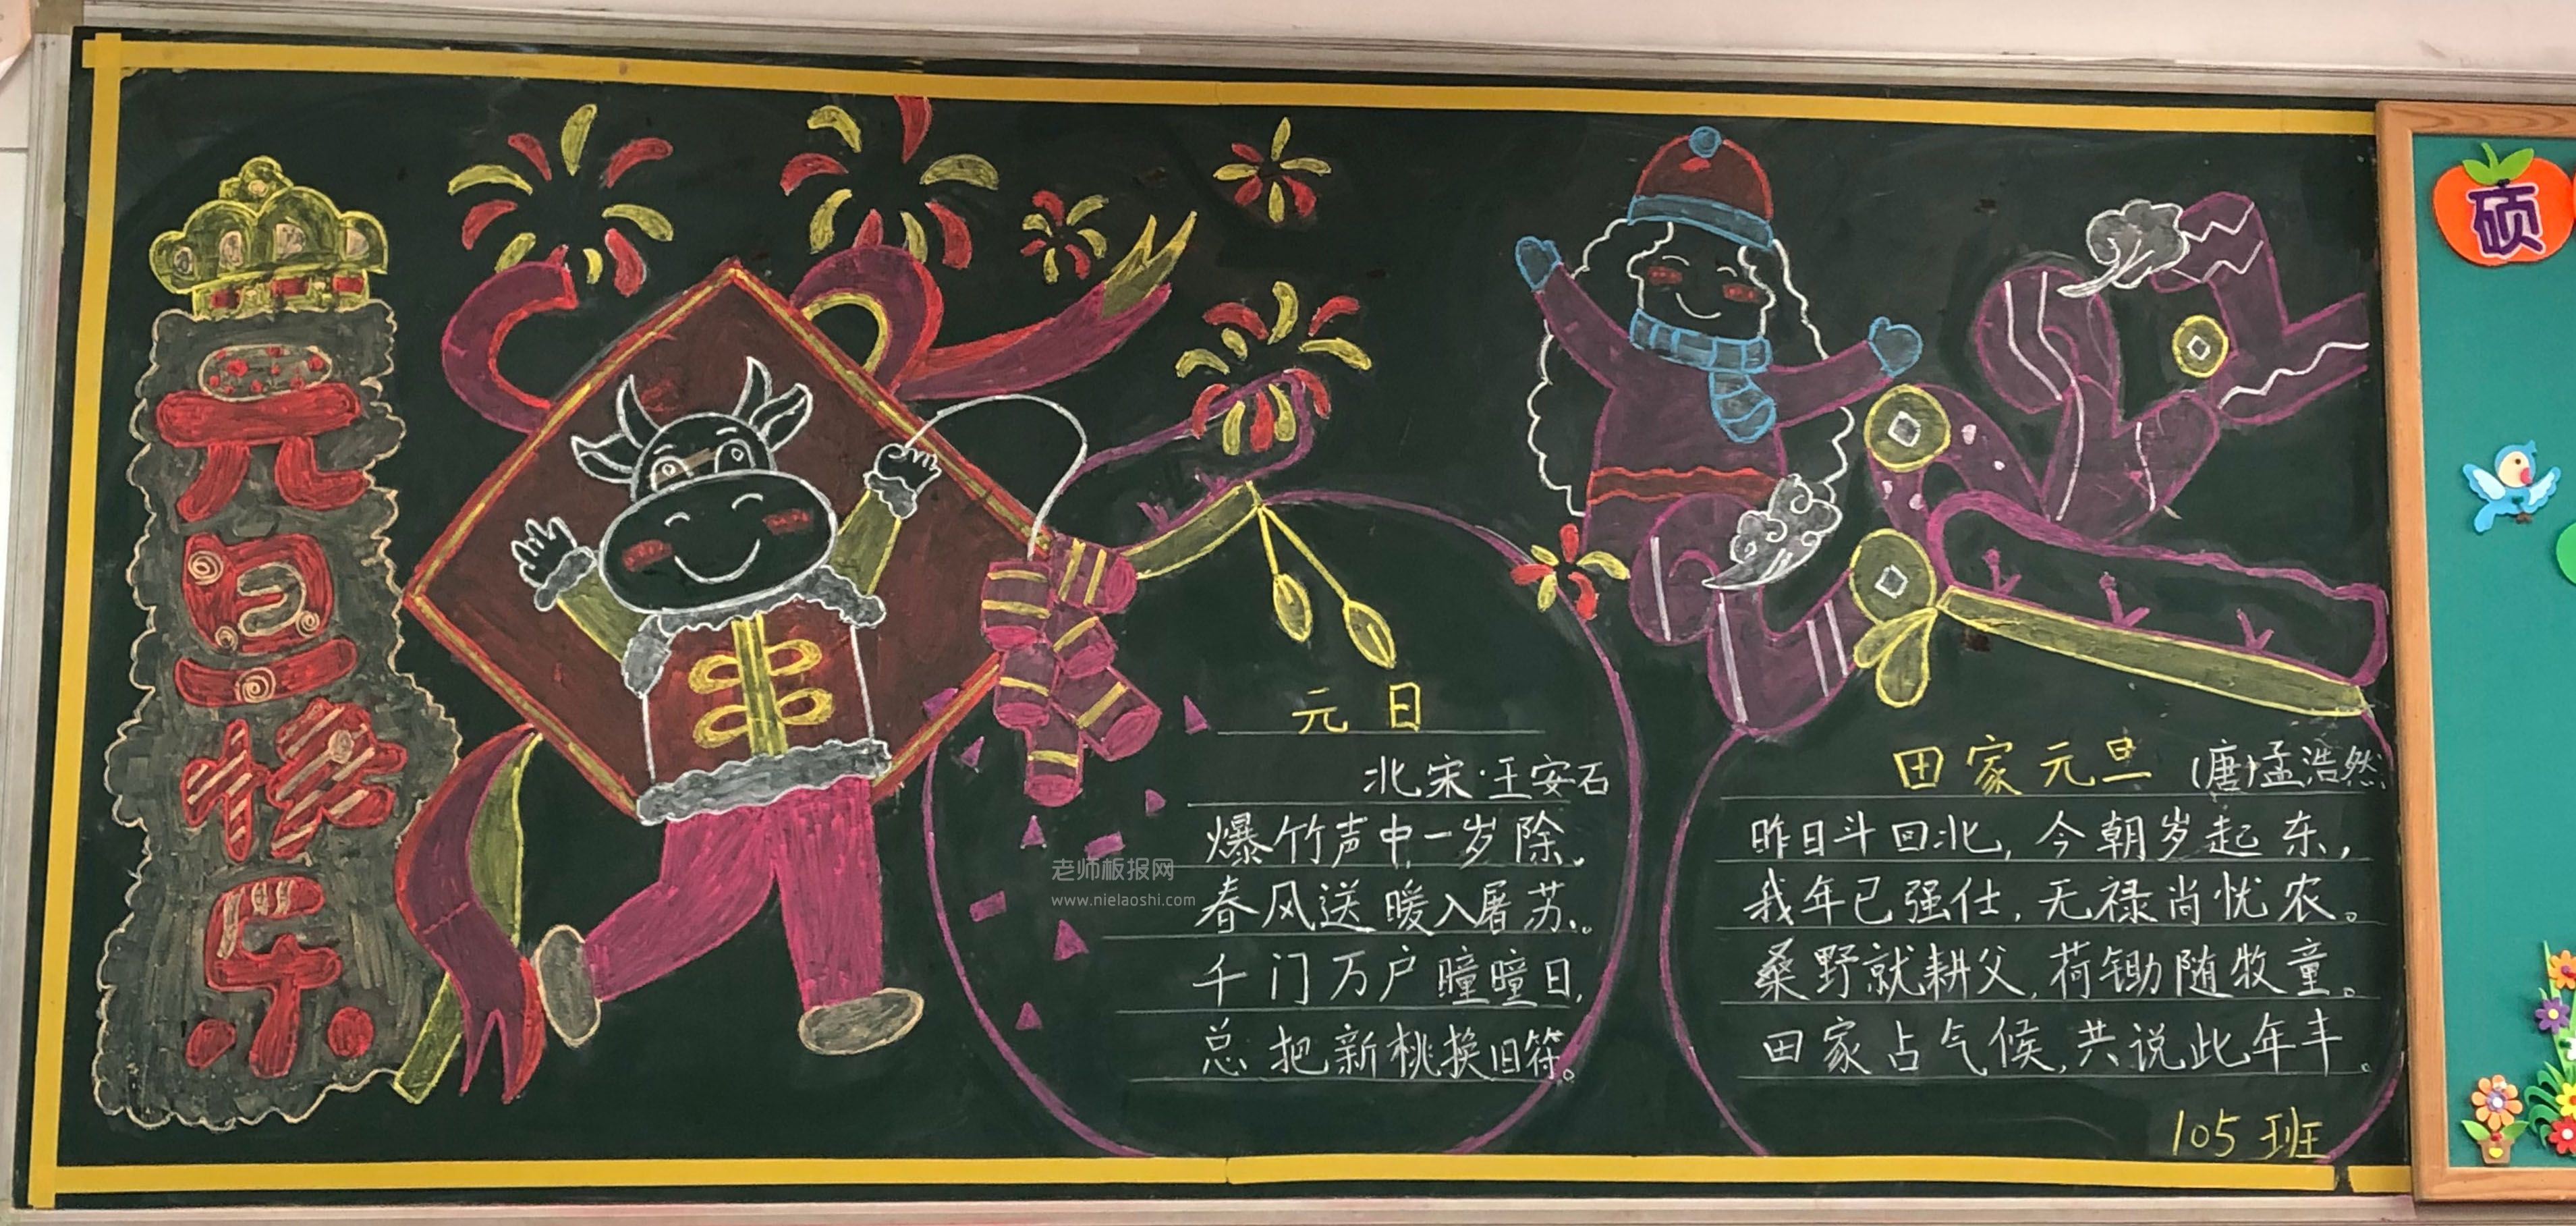 元旦快乐
元日
北宋·王安石
爆竹声中一岁除,
春风送暖入屠苏。
千门万户曈曈日,
总把新桃换旧符。
田家元旦 (唐)孟浩然
昨日斗回北,今朝岁起东,
我年已强仕,无禄尚忧农。
桑野就耕父,荷锄随牧童。
田家占气候,共说此年丰。
105班
硕
老师板报网
www.nielaoshi.com